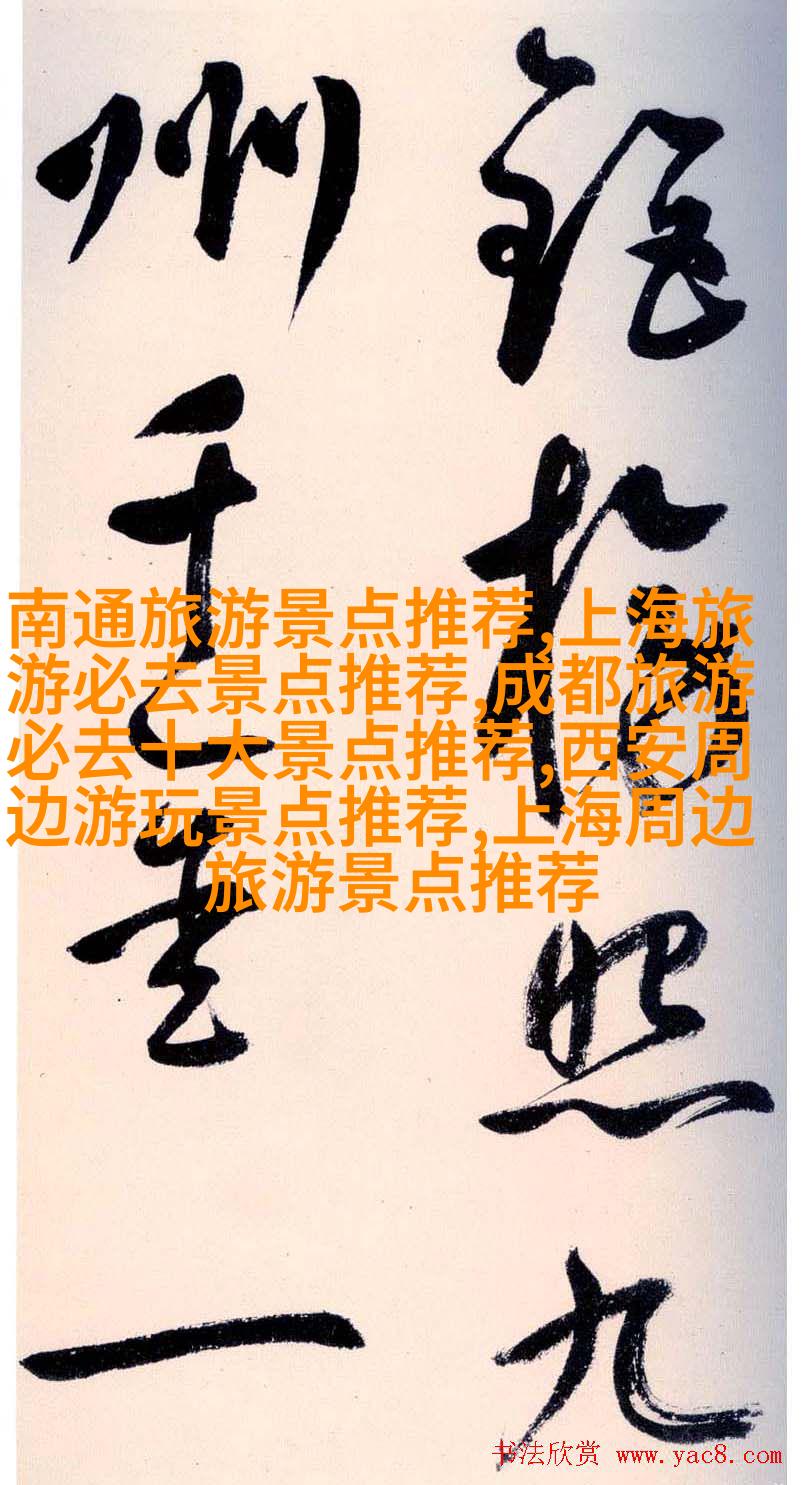 照九
州一
南通旅游景点推荐,上海旅
游必去景点推荐,成都旅游
必去十大景点推荐,西安周
边游玩景点推荐,上海周边
旅游景点推荐
书法欣赏 www.yac8.com